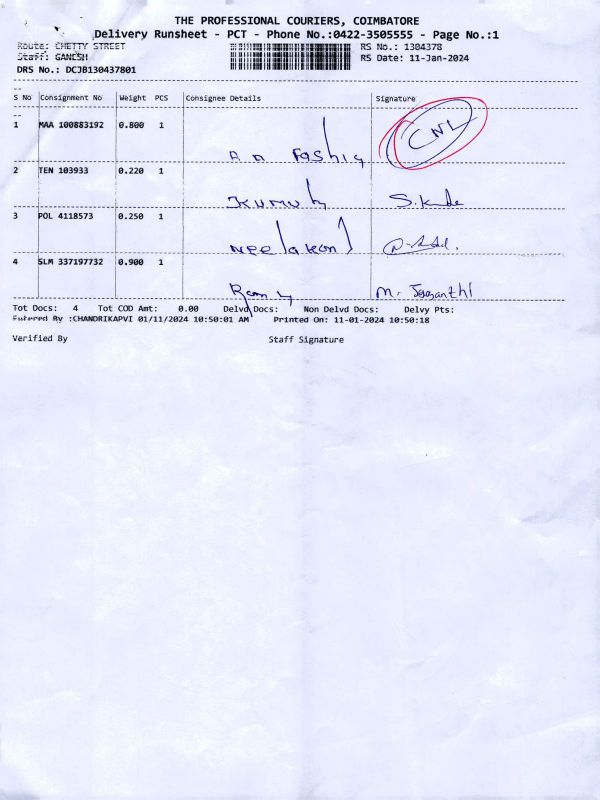 THE PROFESSIONAL COURIERS, COIMBATORE
Delivery Runsheet - PCT - Phone No.:0422-3505555 - Page No.:1
Route: CHETTY STREET
RS No.: 1304378
Staff: GANESH
RS Date: 11-Jan-2024
DRS No.: DCJB130437801
S No Consignment No Weight PCS Consignee Details Signature
1 MAA 100883192 0.800 1
CNL
A n Fashiq
2 TEN 103933 0.220 1
Kumuh S.
3 POL 4118573 0.250 1
Neelakand
4 SLM 337197732 0.900 1
M. Jayanthi
Tot Docs: 4 Tot COD Amt: 0.00 Delvd Docs: Non Delvd Docs: Delvy Pts:
Entered By :CHANDRIKAPVI 01/11/2024 10:50:01 AM Printed On: 11-01-2024 10:50:18
Verified By Staff Signature